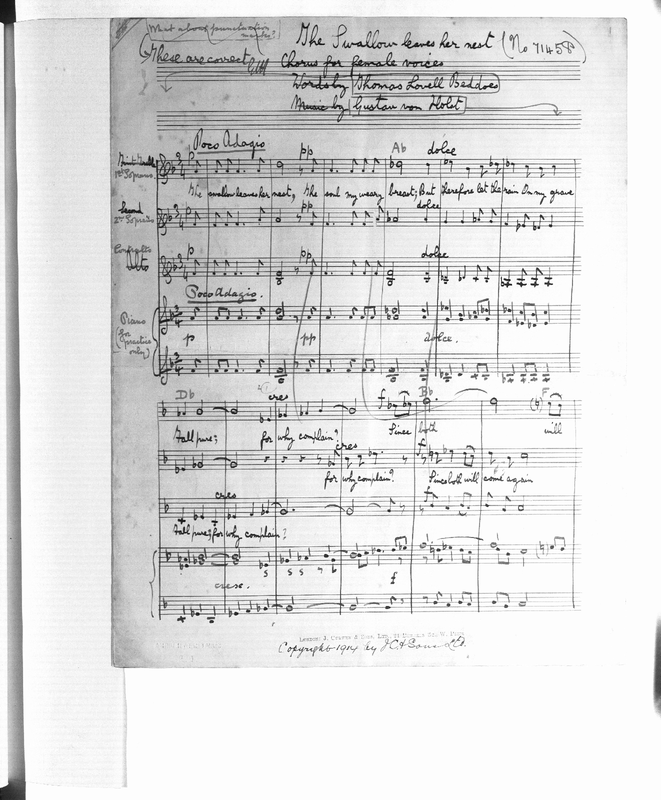 What about punctuation
marks?
The Swallow leaves her nest (No 71458)
(These are correct
Chorus for female voices
Words by Thomas Lovell Beddoes
Music by Gustav von Holst
Poco Adagio
p pp Ab dolce
1st Soprano
The swallow leaves her nest, The soul my weary breast; But therefore let the rain On my grave
pp dolce
Second
2nd Soprano
Contralto
Alto
p pp dolce
Poco Adagio.
Piano
(for
practice
only)
p pp dolce.
Db cres f Bb F
Fall pure; for why complain? Since both will
cres f
for why complain? Since both will come again
cres f
Fall pure; for why complain?
cresc. f
London: J. Curwen & Sons Ltd., 24 Berners St. W.
Copyright 1914 by J C & Sons Ld.